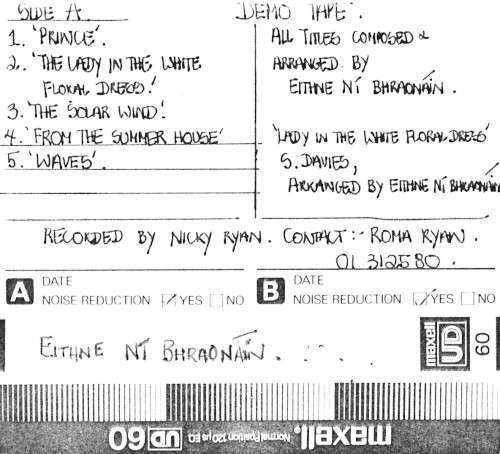 SIDE A
1. 'PRINCE'.
2. 'THE LADY IN THE WHITE
FLORAL DRESS.'
3. 'THE SOLAR WIND'.
4. 'FROM THE SUMMER HOUSE'
5. 'WAVES'.
DEMO TAPE.
ALL TITLES COMPOSED &
ARRANGED BY
EITHNE NÍ BHRAONÁIN.
'LADY IN THE WHITE FLORAL DRESS'
S. DAVIES,
ARRANGED BY EITHNE NÍ BHRAONÁIN
RECORDED BY NICKY RYAN. CONTACT :- ROMA RYAN.
01 312580.
A DATE
NOISE REDUCTION YES NO
B DATE
NOISE REDUCTION YES NO
EITHNE NÍ BHRAONÁIN.
maxell UD 60
maxell. Normal Position 120 µs EQ UD 60